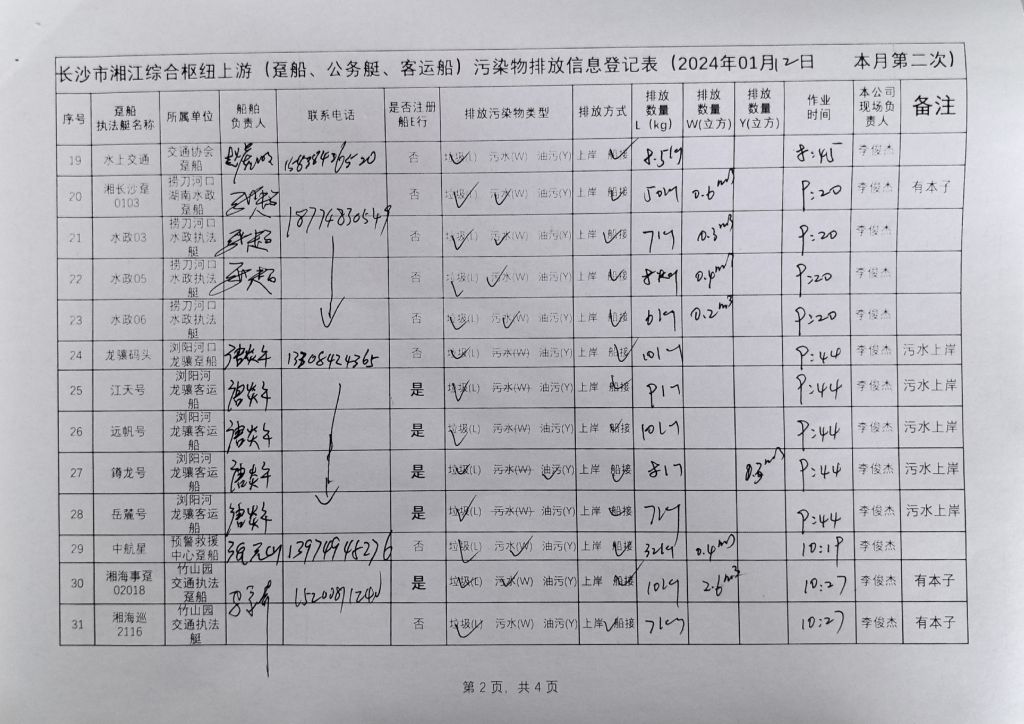 长沙市湘江综合枢纽上游（趸船、公务艇、客运船）污染物排放信息登记表（2024年01月12日 本月第二次）
序号 趸船执法艇名称 所属单位 船舶负责人 联系电话 是否注册船E行 排放污染物类型 排放方式 排放数量L（kg） 排放数量W(立方) 排放数量Y(立方) 作业时间 本公司现场负责人 备注
19 水上交通 交通协会趸船 否 垃圾(L) 污水(W) 油污(Y) 上岸 船接 8.5kg 8:45 李俊杰
20 湘长沙趸0103 捞刀河口湖南水政趸船 18774830549 否 垃圾(L) 污水(W) 油污(Y) 上岸 船接 50kg 0.6m3 9:20 李俊杰 有本子
21 水政03 捞刀河口水政执法艇 否 垃圾(L) 污水(W) 油污(Y) 上岸 船接 7kg 0.3m3 9:20 李俊杰
22 水政05 捞刀河口水政执法艇 否 垃圾(L) 污水(W) 油污(Y) 上岸 船接 8kg 0.4m3 9:20 李俊杰
23 水政06 捞刀河口水政执法艇 否 垃圾(L) 污水(W) 油污(Y) 上岸 船接 6kg 0.2m3 9:20 李俊杰
24 龙骧码头 浏阳河口龙骧趸船 13308424365 否 垃圾(L) 污水(W) 油污(Y) 上岸 船接 10kg 9:44 李俊杰 污水上岸
25 江天号 浏阳河龙骧客运船 是 垃圾(L) 污水(W) 油污(Y) 上岸 船接 9kg 9:44 李俊杰 污水上岸
26 远帆号 浏阳河龙骧客运船 是 垃圾(L) 污水(W) 油污(Y) 上岸 船接 10kg 9:44 李俊杰 污水上岸
27 鐏龙号 浏阳河龙骧客运船 是 垃圾(L) 污水(W) 油污(Y) 上岸 船接 8kg 0.3m3 9:44 李俊杰 污水上岸
28 岳麓号 浏阳河龙骧客运船 是 垃圾(L) 污水(W) 油污(Y) 上岸 船接 7kg 9:44 李俊杰 污水上岸
29 中航星 预警救援中心趸船 13974948276 否 垃圾(L) 污水(W) 油污(Y) 上岸 船接 32kg 0.4m3 10:19 李俊杰
30 湘海事趸02018 竹山园交通执法趸船 是 垃圾(L) 污水(W) 油污(Y) 上岸 船接 10kg 2.6m3 10:27 李俊杰 有本子
31 湘海巡2116 竹山园交通执法艇 否 垃圾(L) 污水(W) 油污(Y) 上岸 船接 7kg 10:27 李俊杰 有本子
第 2 页，共 4 页